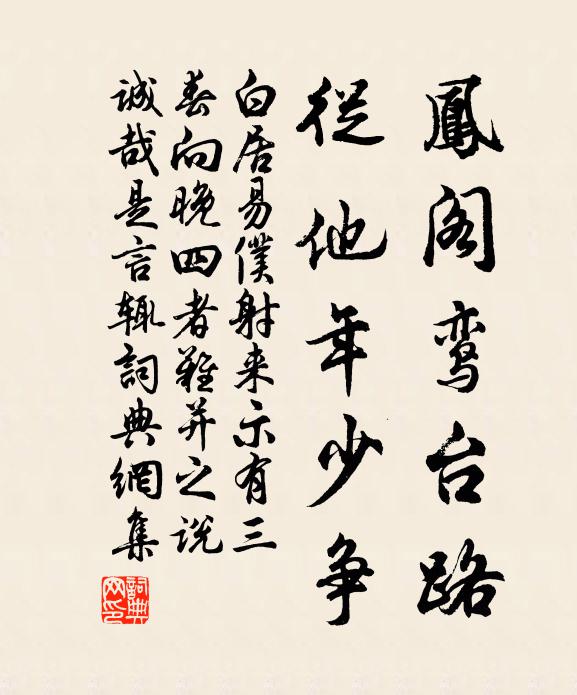 鳳阁鸾台路
從他年少争
白居易僕射来示有三
春向晚四者難并之说
誠哉是言辄詞典網集
詞典网印